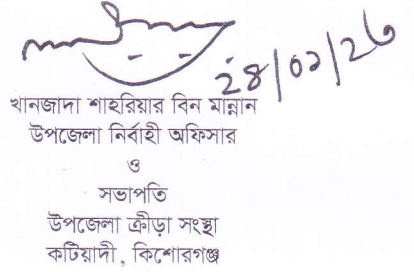 ২৪/০১/২৬
খানজাদা শাহরিয়ার বিন মান্নান
উপজেলা নির্বাহী অফিসার
ও
সভাপতি
উপজেলা ক্রীড়া সংস্থা
কটিয়াদী, কিশোরগঞ্জ